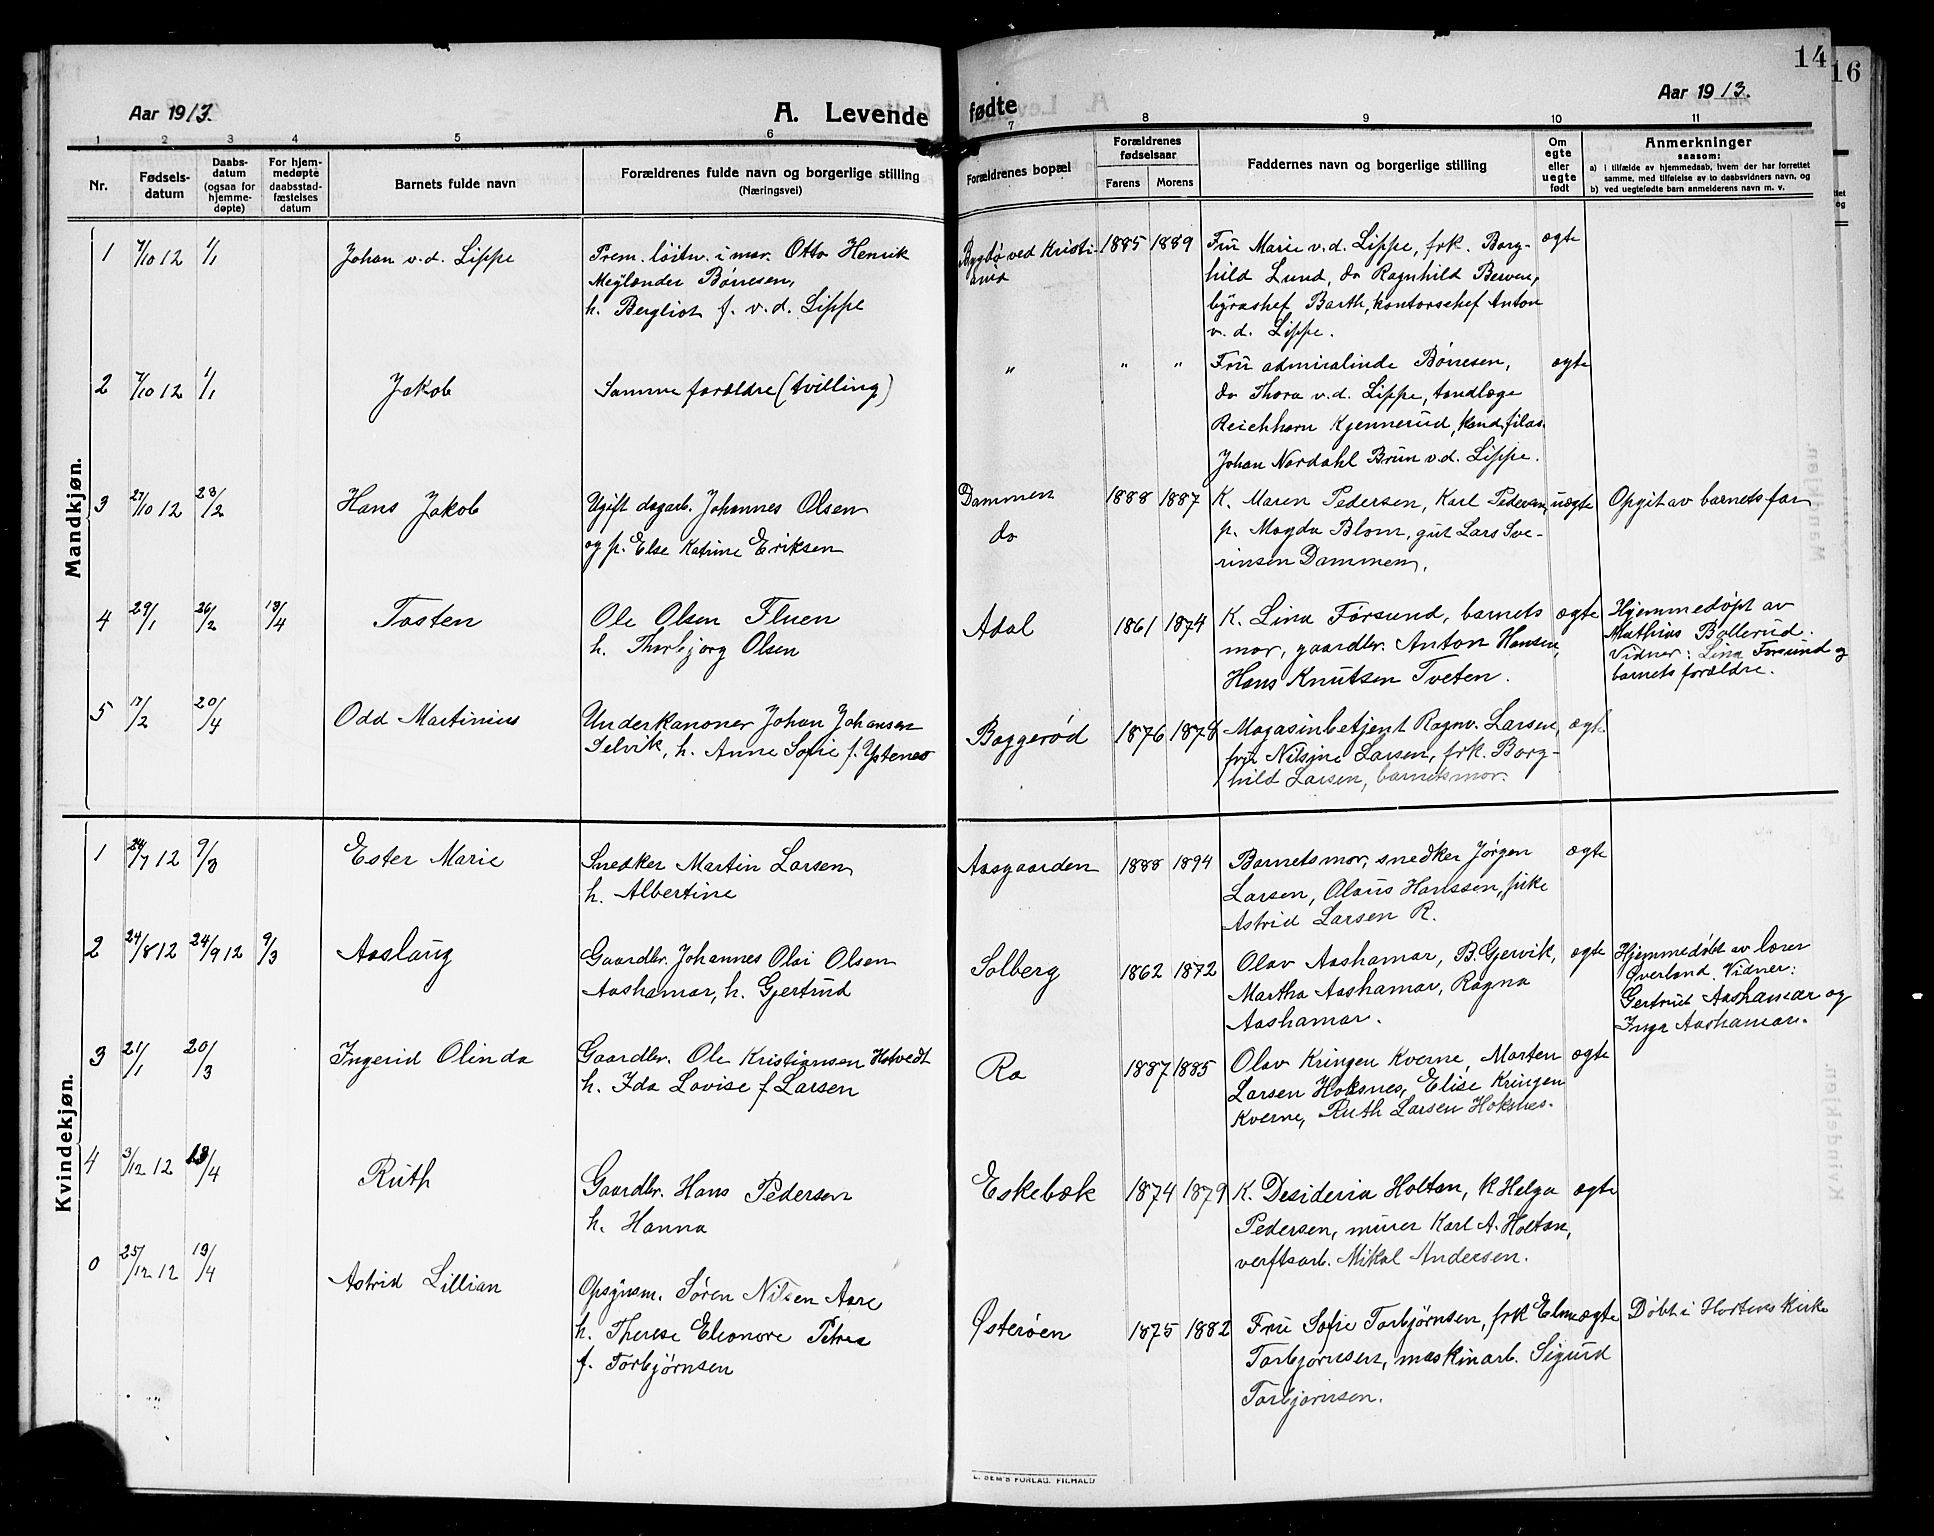 14
16
Aar 1913.
A. Levende fødte
Aar 1913.
1 2 3 4 5 6 7 8 9 10 11
Nr.
Fødsels-
datum
Daabs-
datum
(ogsaa for
hjemme-
døpte)
For hjem-
medøpte
daabsstad-
fæstelses
datum
Barnets fulde navn
Forældrenes fulde navn og borgerlige stilling
(Næringsvei)
Forældrenes bopæl
Forældrenes
fødselsaar
Farens Morens
Faddernes navn og borgerlige stilling
Om
egte
eller
uegte
født
Anmerkninger
saasom:
a) i tilfælde av hjemmedaab, hvem der har forrettet
samme, med tilføielse av to daabsvidners navn, og
b) ved uegtefødte barn anmelderens navn m. v.
Mandkjøn.
1 7/10 12 1/1 Johan v.d. Lippe
Prem. løitn. i mar. Otto Henrik
Meylænder Børresen,
h. Bergliot f. v.d. Lippe
Bygdø ved Kristi-
ania
1885 1889
Fru Marie v.d. Lippe, frk. Borg-
hild Lund, do Ragnhild Berven,
byraschef Barth, kontorschef Anton
v. d. Lippe.
ægte
2 7/10 12 1/1 Jakob
Samme forældre (tvilling)
" " "
Fru admiralinde Børresen,
do Thora v.d. Lippe, tandlæge
Reichhorn Kjennerud, kand. filos.
Johan Nordahl Brun v.d. Lippe.
ægte
3 27/10 12 23/2 Hans Jakob
Ugift dagarb. Johannes Olsen
og p. Else Katrine Eriksen
Dammen
do
1888 1887
K. Maren Pedersen, Karl Pedersen,
p. Magda Blom, gut Lars Sve-
rinsen Dammen.
uægte
Opgit av barnets far
4 29/1 26/2 13/4 Tosten
Ole Olsen Fluen
h. Thorbjørg Olsen
Adal
1861 1874
K. Lina Førsund, barnets
mor, gaardbr. Anton Hansen,
Hans Knutsen Tveten.
ægte
Hjemmedøpt av
Mathias Bollerud.
Vidner: Lina Førsund og
barnets forældre.
5 17/2 20/4 Odd Martinius
Underkanoner Johan Johansen
Selvik, h. Anne Sofie f. Ystenes
Baggerød
1876 1874
Magasinbetjent Ragnv. Larsen,
frue Nilsine Larsen, frk. Borg-
hild Larsen, barnets mor.
ægte
Kvindekjøn.
1 24/7 12 9/3 Ester Marie
Snedker Martin Larsen
h. Albertine
Aasgaarden
1888 1894
Barnets mor, snedker Jørgen
Larsen, Olaus Hanssen, pike
Astrid Larsen R.
ægte
2 24/8 12 24/9 12 9/3 Aaslaug
Gaardbr. Johannes Olai Olsen
Aashamar, h. Gjertrud
Solberg
1862 1872
Olav Aashamar, B. Gjervik,
Martha Aashamar, Ragna
Aashamar.
ægte
Hjemmedøbt av lærer
Øverland. Vidner:
Gertrud Aashamar og
Inga Aashamar.
3 21/1 20/3 Ingerid Olinda
Gaardbr. Ole Kristiansen Hotvedt
h. Ida Lovise f Larsen
Ra
1887 1885
Olav Kringen Kverne, Morten
Larsen Hoksnes, Elise Kringen
Kverne, Ruth Larsen Hoksnes.
ægte
4 3/12 12 13/4 Ruth
Gaardbr. Hans Pedersen
h. Hanna
Eskebæk
1874 1879
K. Desideria Holtan, K Helga
Pedersen, murer Karl A. Holtan,
verftsarb. Mikal Andersen.
ægte
0 25/12 12 19/4 Astrid Lillian
Opsynsm. Søren Nilsen Aare
h. Therese Eleonore Petrea
f. Torbjørnsen
Østerøen
1875 1882
Fru Sofie Torbjørnsen, frk Elna
Torbjørnsen, maskinarb. Sigurd
Torbjørnsen.
ægte
Døbt i Hortens Kirke
E. SEM'S FORLAG. FR.HALD